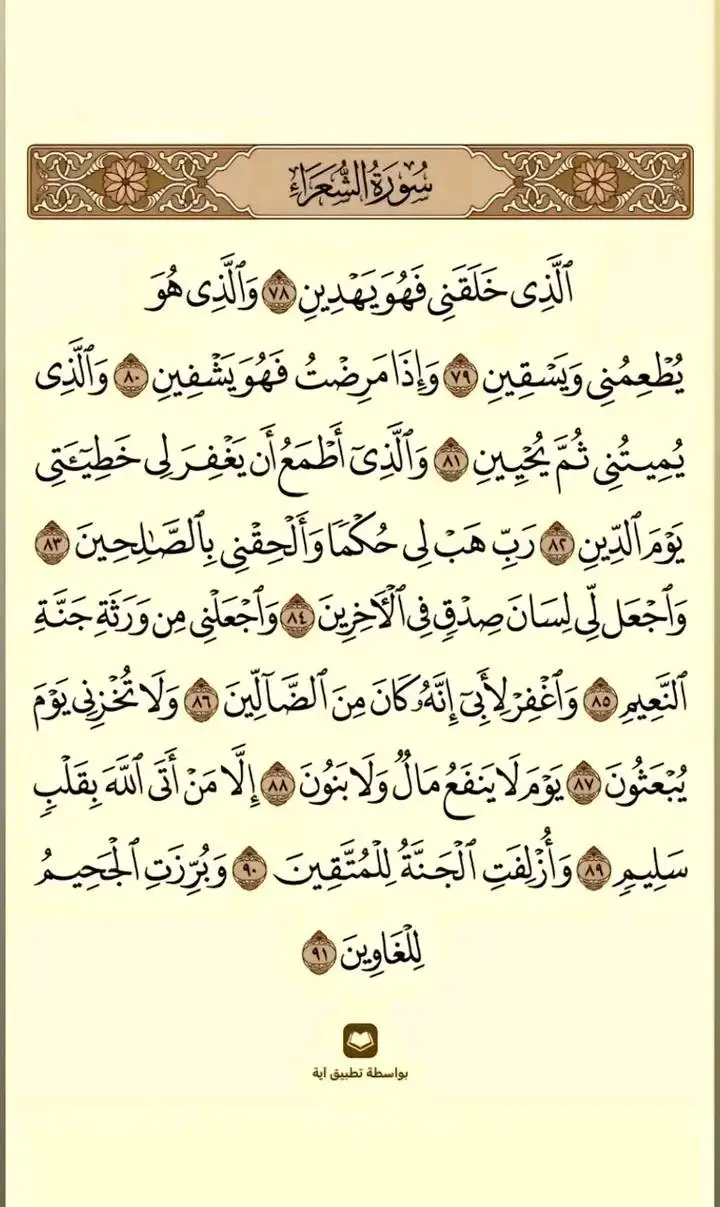 سُورَةُ الشُّعَرَاءِ
ٱلَّذِى خَلَقَنِى فَهُوَ يَهْدِينِ ٧٨ وَٱلَّذِى هُوَ
يُطْعِمُنِى وَيَسْقِينِ ٧٩ وَإِذَا مَرِضْتُ فَهُوَ يَشْفِينِ ٨٠ وَٱلَّذِى
يُمِيتُنِى ثُمَّ يُحْيِينِ ٨١ وَٱلَّذِىٓ أَطْمَعُ أَن يَغْفِرَ لِى خَطِيٓـَٔتِى
يَوْمَ ٱلدِّينِ ٨٢ رَبِّ هَبْ لِى حُكْمًا وَأَلْحِقْنِى بِٱلصَّـٰلِحِينَ ٨٣
وَٱجْعَل لِّى لِسَانَ صِدْقٍ فِى ٱلْـَٔاخِرِينَ ٨٤ وَٱجْعَلْنِى مِن وَرَثَةِ جَنَّةِ
ٱلنَّعِيمِ ٨٥ وَٱغْفِرْ لِأَبِىٓ إِنَّهُۥ كَانَ مِنَ ٱلضَّآلِّينَ ٨٦ وَلَا تُخْزِنِى يَوْمَ
يُبْعَثُونَ ٨٧ يَوْمَ لَا يَنفَعُ مَالٌ وَلَا بَنُونَ ٨٨ إِلَّا مَنْ أَتَى ٱللَّهَ بِقَلْبٍ
سَلِيمٍ ٨٩ وَأُزْلِفَتِ ٱلْجَنَّةُ لِلْمُتَّقِينَ ٩٠ وَبُرِّزَتِ ٱلْجَحِيمُ
لِلْغَاوِينَ ٩١
بواسطة تطبيق اية